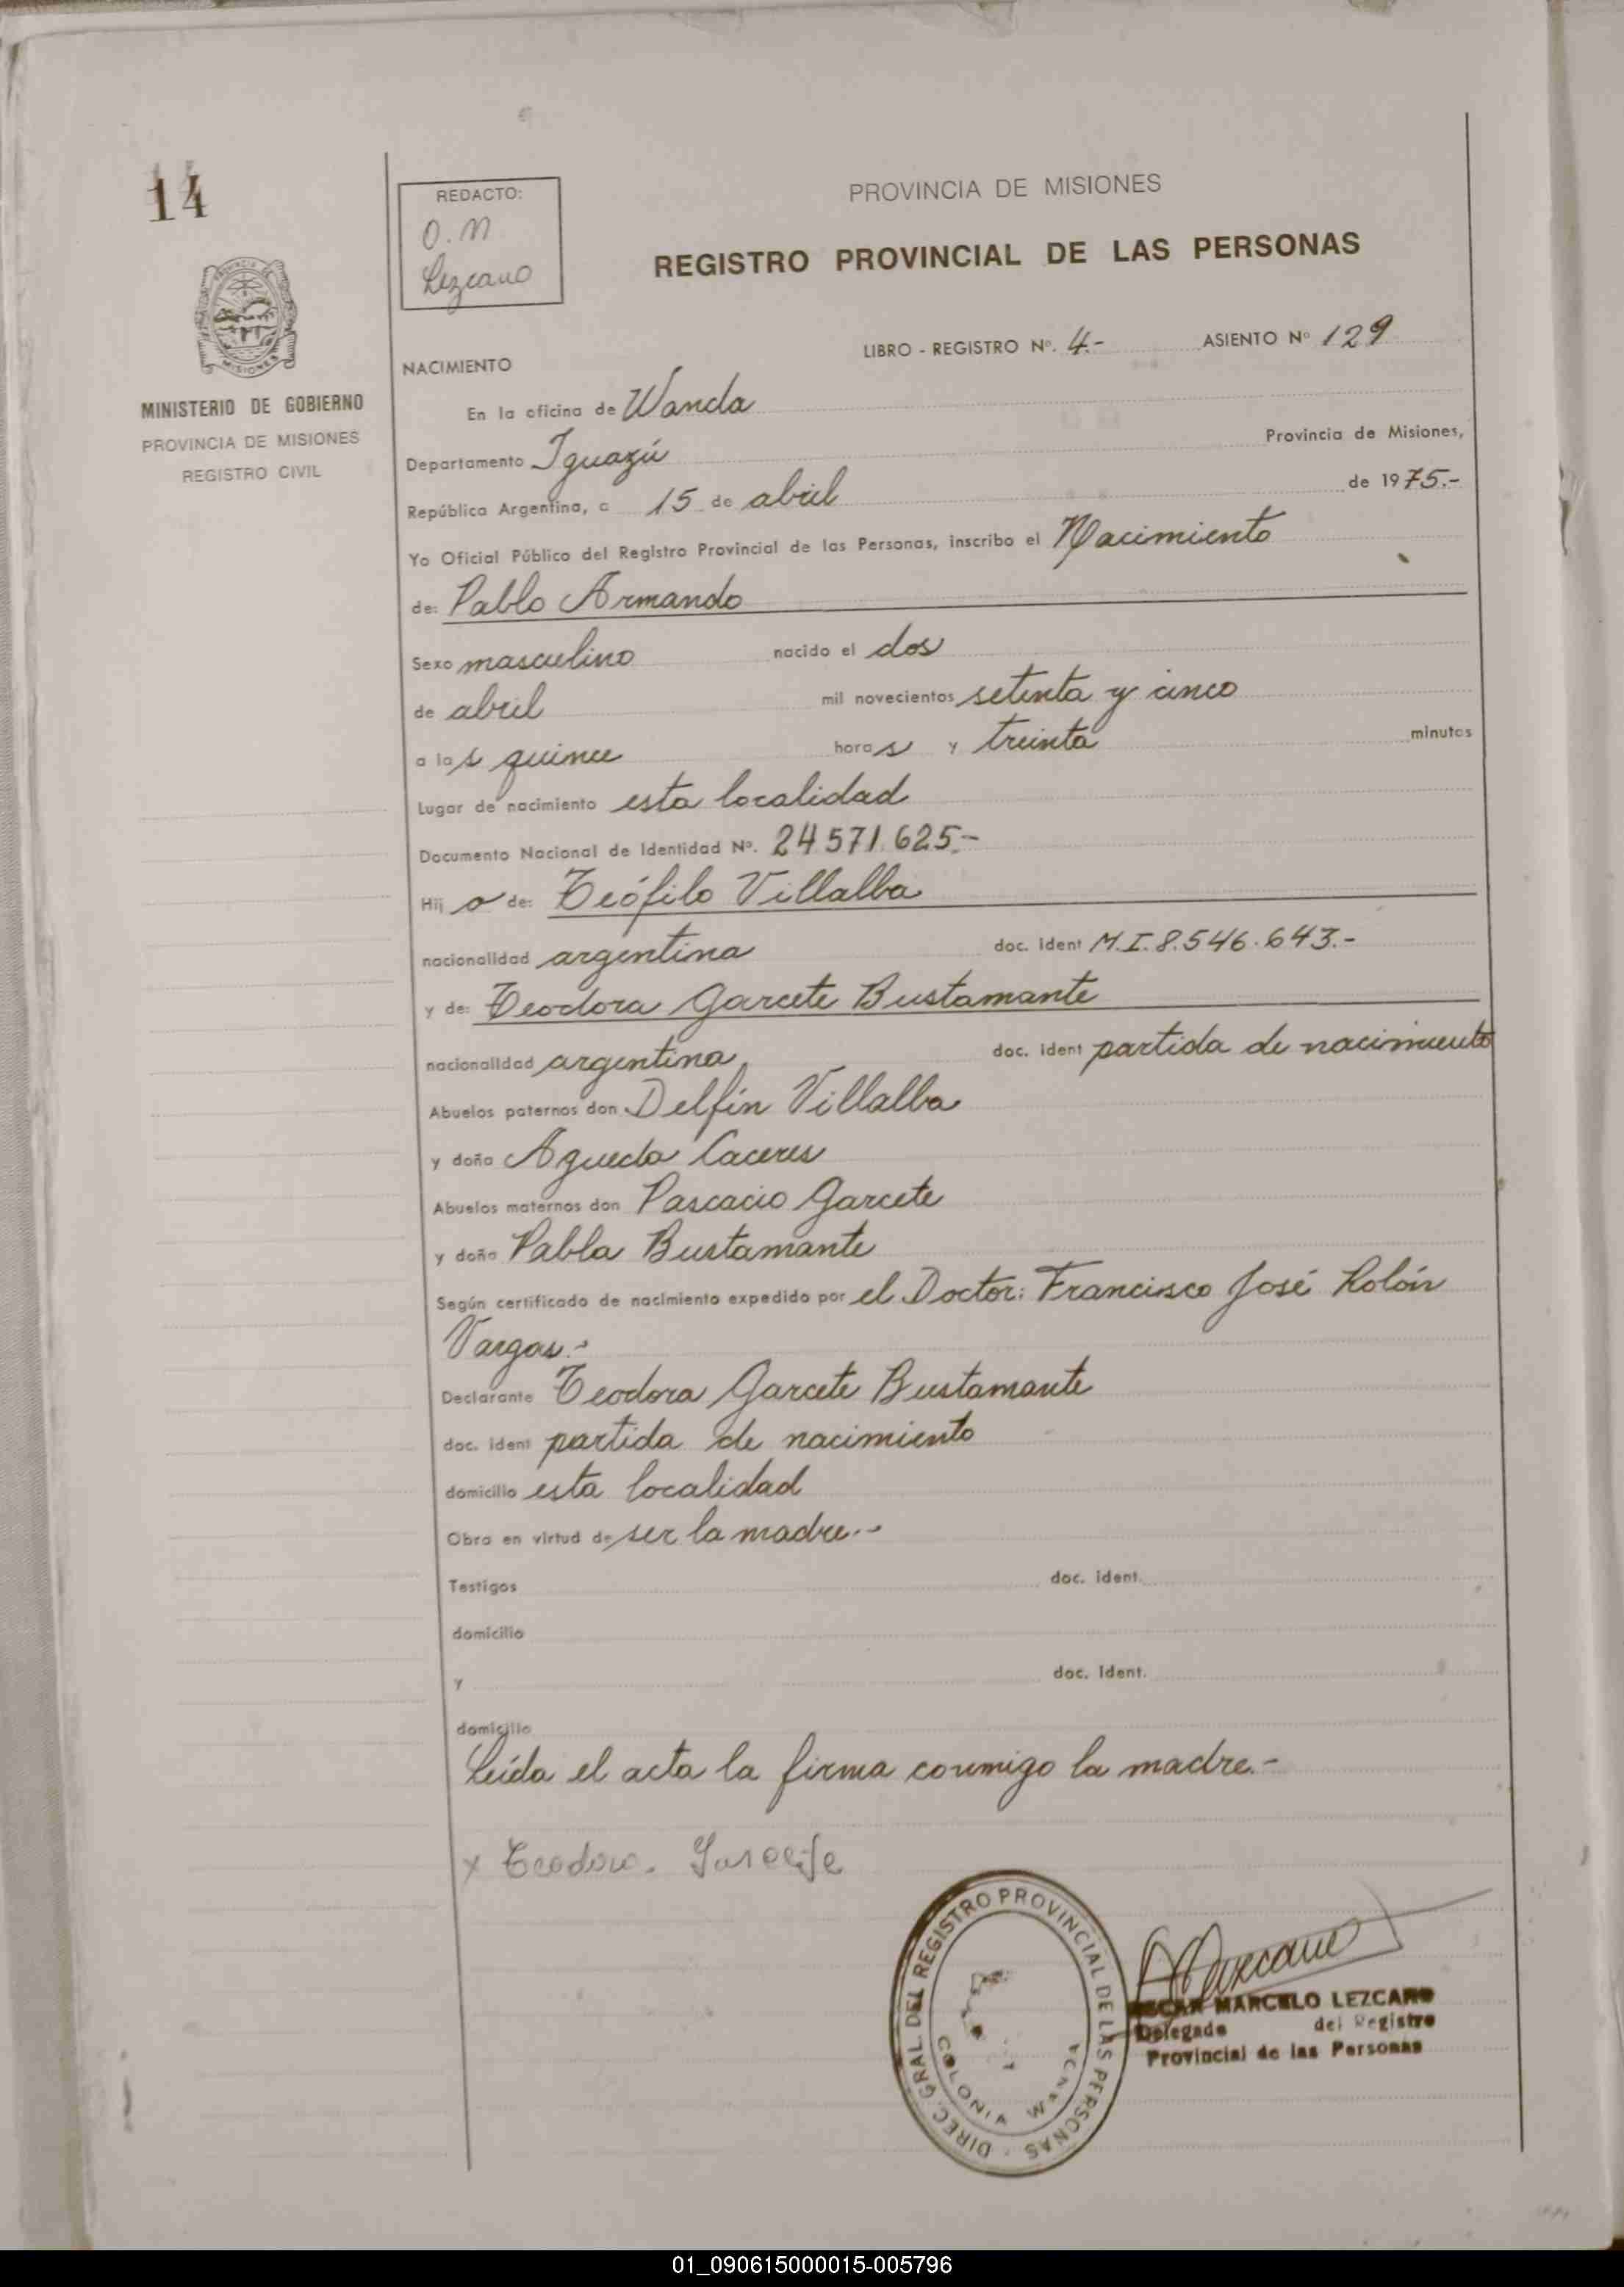 14
REDACTO:
O. M
Lezcano
PROVINCIA DE MISIONES
REGISTRO PROVINCIAL DE LAS PERSONAS
PROVINCIA DE
MISIONES
MINISTERIO DE GOBIERNO
PROVINCIA DE MISIONES
REGISTRO CIVIL
LIBRO - REGISTRO Nº. 4.- ASIENTO Nº 129
NACIMIENTO
En la oficina de Wanda
Departamento Iguazú Provincia de Misiones,
República Argentina, a 15 de abril de 1975.-
Yo Oficial Público del Registro Provincial de las Personas, inscribo el Nacimiento
de: Pablo Armando
Sexo masculino nacido el dos
de abril mil novecientos setenta y cinco
a las quince horas y treinta minutos
Lugar de nacimiento esta localidad
Documento Nacional de Identidad Nº. 24.571.625.-
Hij o de: Teófilo Villalba
nacionalidad argentina doc. ident M.I. 8.546.643.-
y de: Teodora Garcete Bustamante
nacionalidad argentina doc. ident partida de nacimiento
Abuelos paternos don Delfín Villalba
y doña Agueda Caceres
Abuelos maternos don Pascacio Garcete
y doña Pabla Bustamante
Según certificado de nacimiento expedido por el Doctor: Francisco José Rolón
Vargas.-
Declarante Teodora Garcete Bustamante
doc. ident partida de nacimiento
domicilio esta localidad
Obra en virtud de ser la madre.-
Testigos doc. ident.
domicilio
y doc. ident.
domicilio
Leída el acta la firma conmigo la madre.-
x Teodora. Garcete
DIREC. GRAL DEL REGISTRO PROVINCIAL DE LAS PERSONAS
COLONIA WANDA
OSCAR MARCELO LEZCANO
Delegado del Registro
Provincial de las Personas
01_090615000015-005796